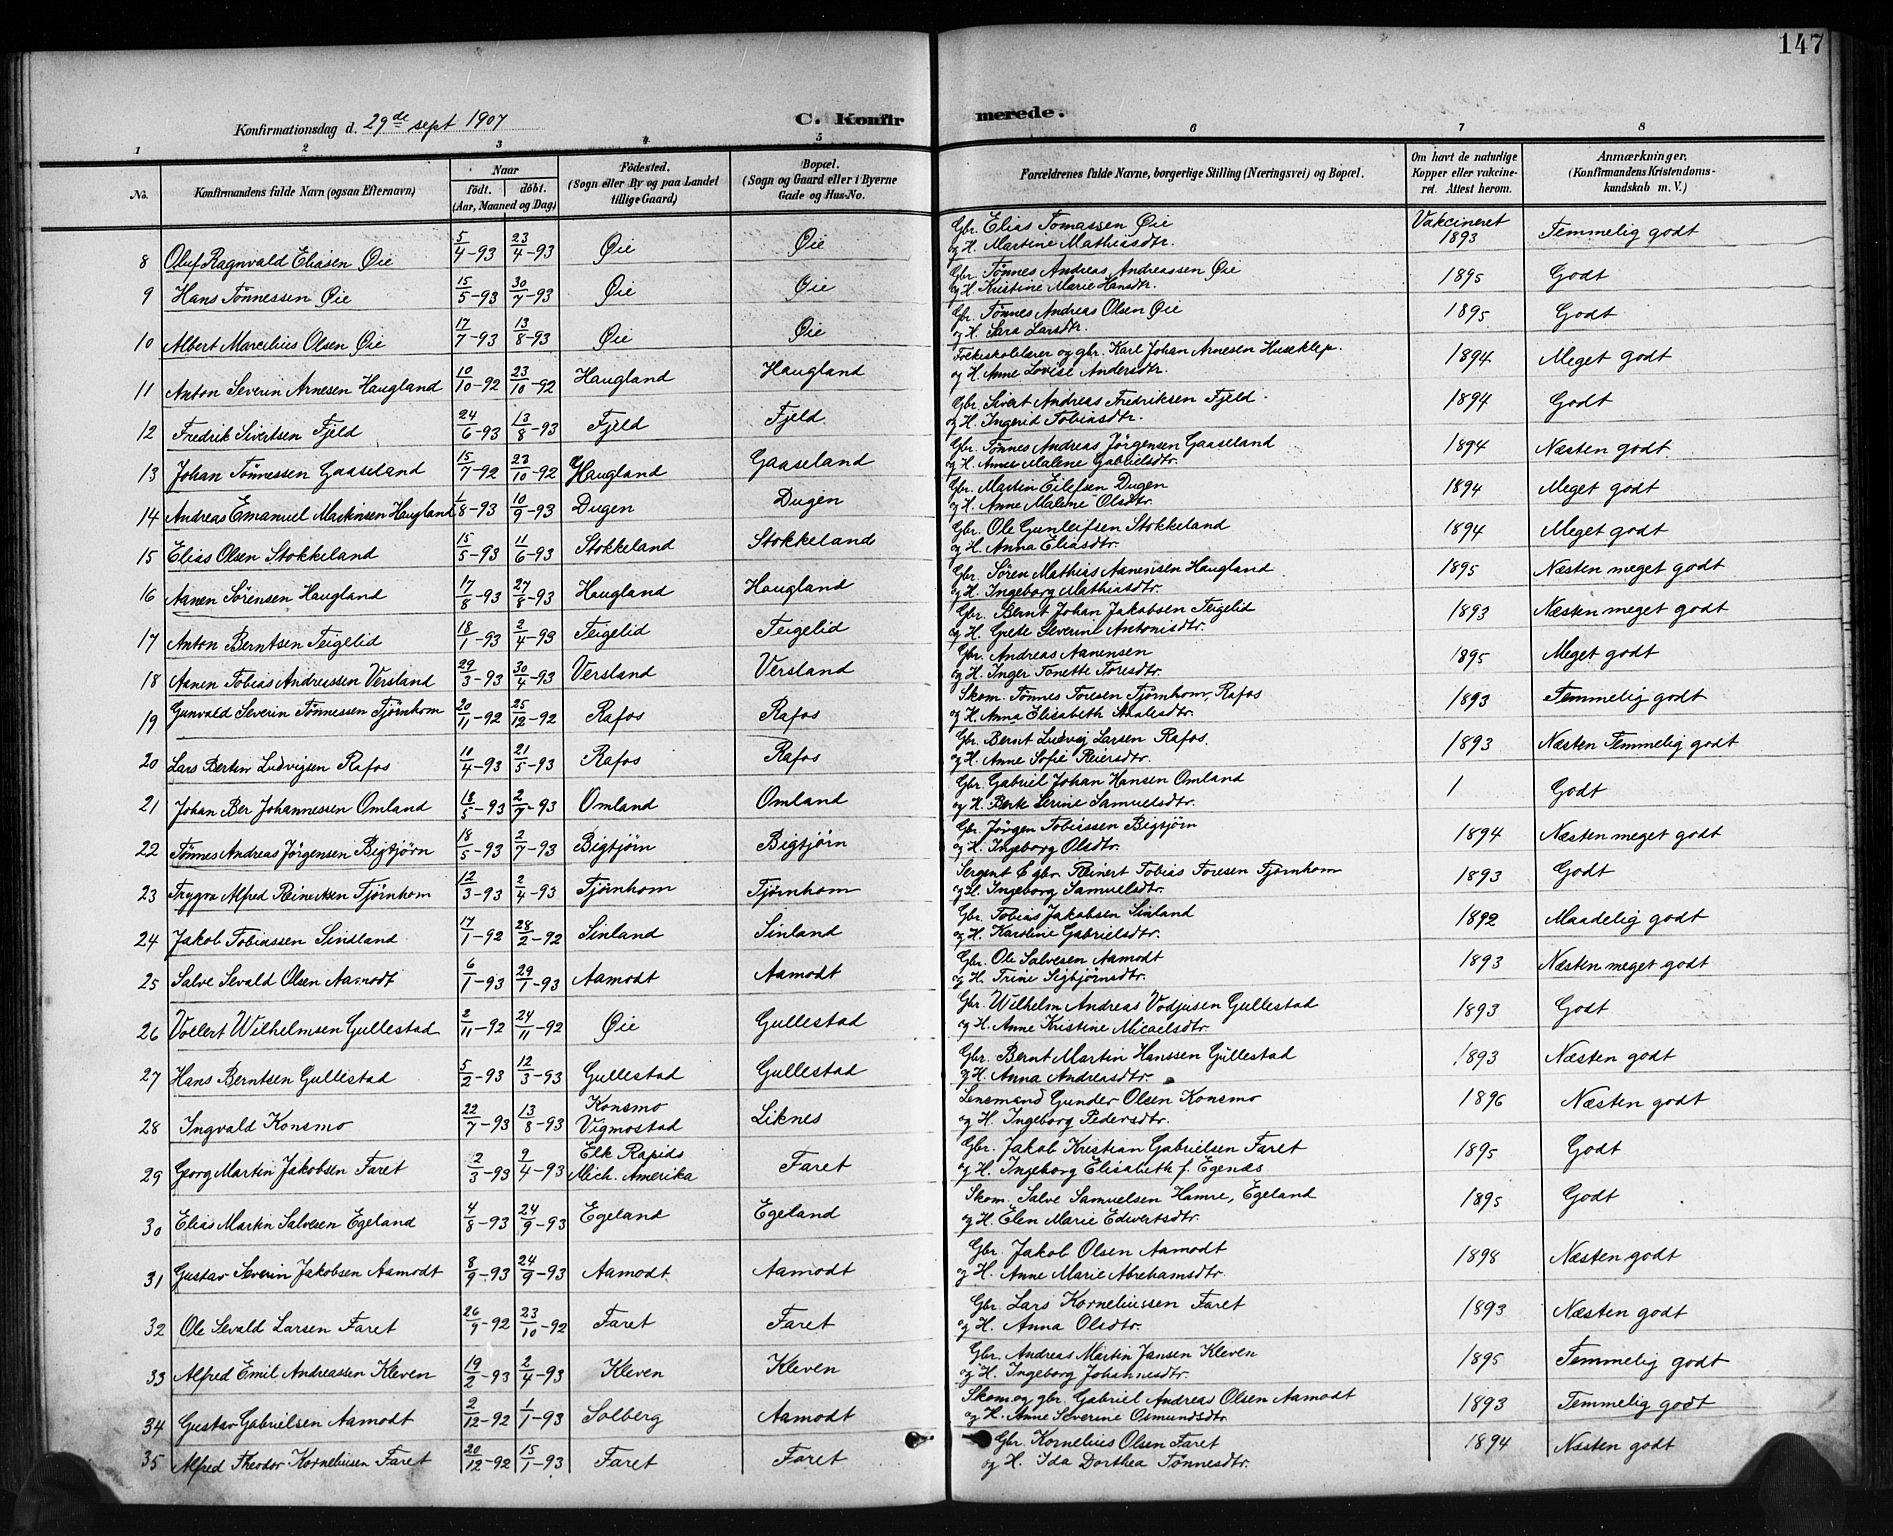 147
Konfirmationsdag d. 29de sept 1907
C. Konfirmerede.
1 2 3 4 5 6 7 8
No. Konfirmandens fulde Navn (ogsaa Efternavn) Naar født. døbt. (Aar, Maaned og Dag) Fødested. (Sogn eller By og paa Landet tillige Gaard) Bopæl. (Sogn og Gaard eller i Byerne Gade og Hus-No. Forældrenes fulde Navne, borgerlige Stilling (Næringsvei) og Bopæl. Om havt de naturlige Kopper eller vakcineret. Attest herom. Anmærkninger. (Konfirmandens Kristendomskundskab m. V.)
8 Oluf Ragnvald Eliasen Øie 5/4-93 23/4-93 Øie Øie Gbr. Elias Tomassen Øie og H. Martine Mathiasdtr. Vakcineret 1893 Temmelig godt
9 Hans Tønnessen Øie 15/5-93 30/7-93 Øie Øie Gbr. Tønnes Andreas Andreassen Øie og H. Kristine Marie Hansdtr. 1895 Godt
10 Albert Marcelius Olsen Øie 17/7-93 13/8-93 Øie Øie Gbr. Tønnes Andreas Olsen Øie og H. Sara Larsdtr. 1895 Godt
11 Anton Severin Arnesen Haugland 10/10-92 23/10-92 Haugland Haugland Folkeskolelærer og gbr. Karl Johan Arnesen Huseklep. og H. Anne Lovise Andersdtr. 1894 Meget godt
12 Fredrik Sivertsen Fjeld 24/6-93 13/8-93 Fjeld Fjeld Gbr. Sivert Andreas Fredriksen Fjeld. og H. Ingerid Tobiasdtr. 1894 Godt
13 Johan Tønnessen Gaaseland 15/7-92 23/10-92 Haugland Gaaseland Gbr. Tønnes Andreas Jørgensen Gaaseland og H. Anne Malene Gabrielsdtr. 1894 Næsten godt.
14 Andreas Emanuel Martinsen Haugland 1/8-93 10/9-93 Dugen Dugen Gbr. Martin Eilefsen Dugen og H. Anne Malene Olsdtr. 1894 Meget godt
15 Elias Olsen Stokkeland 15/5-93 11/6-93 Stokkeland Stokkeland Gbr. Ole Gunleifsen Stokkeland og H. Anna Eliasdtr. 1894 Meget godt
16 Aanen Sørensen Haugland 17/8-93 27/8-93 Haugland Haugland Gbr. Søren Mathias Aanensen Haugland og H. Ingeborg Mathiasdtr. 1895 Næsten meget godt
17 Anton Berntsen Teigelid 18/1-93 2/4-93 Teigelid Teigelid Gbr. Bernt Johan Jakobsen Teigelid og H. Grete Severine Antonisdtr. 1893 Næsten meget godt
18 Aanen Tobias Andreassen Versland 29/3-93 30/4-93 Versland Versland Gbr. Andreas Aanensen og H. Inger Tonette Toresdtr. 1895 Meget godt
19 Gunvald Severin Tønnessen Tjørnhom 20/11-92 25/12-92 Rafos Rafos Skom. Tønnes Toresen Tjørnhom, Rafos og H. Anna Elisabeth Aadesdtr. 1893 Temmelig godt
20 Lars Bertin Ludvigsen Rafos 10/4-93 21/5-93 Rafos Rafos Gbr. Bernt Ludvig Larsen Rafos. og H. Anne Sofie Reiersdtr. 1893 Næsten Temmelig godt
21 Johan Ber Johannessen Omland 18/5-93 2/7-93 Omland Omland Gbr. Gabriel Johan Hansen Omland og H. Berte Serine Samuelsdtr. 1 Godt
22 Tønnes Andreas Jørgensen Bigtjørn 18/5-93 2/7-93 Bigtjørn Bigtjørn Gbr. Jørgen Tobiassen Bigtjørn og H. Ingeborg Olsdtr. 1894 Næsten meget godt
23 Trygve Alfred Reinertsen Tjørnhom 12/3-93 2/4-93 Tjørnhom Tjørnhom Sergent & gbr. Reinert Tobias Toresen Tjørnhom og H. Ingeborg Samuelsdtr. 1893 Godt
24 Jakob Tobiassen Sindland 17/1-92 28/2-92 Sinland Sinland Gbr. Tobias Jakobsen Sinland og H. Karoline Gabrielsdtr. 1892 Maadelig godt
25 Salve Sevald Olsen Aamodt 6/1-93 29/1-93 Aamodt Aamodt Gbr. Ole Salvesen Aamodt og H. Trine Sigbjørnsdtr. 1893 Næsten meget godt
26 Vollert Wilhelmsen Gullestad 2/11-92 24/11-92 Øie Gullestad Gbr. Wilhelm Andreas Vodjusen Gullestad og H. Anne Kristine Micaelsdtr. 1893 Godt
27 Hans Berntsen Gullestad 5/2-93 12/3-93 Gullestad Gullestad Gbr. Bernt Martin Hanssen Gullestad og H. Anna Andreasdtr. 1893 Næsten godt
28 Ingvald Konsmo 22/7-93 13/8-93 Konsmo Vigmostad Liknes Lensmand Gunder Olsen Konsmo og H. Ingeborg Pedersdtr. 1896 Næsten godt
29 Georg Martin Jakobsen Faret 2/3-93 9/4-93 Elk Rapids Mich. Amerika Faret Gbr. Jakob Kristian Gabrielsen Faret og H. Ingeborg Elisabeth f. Egenæs 1895 Godt
30 Elias Martin Salvesen Egeland 4/8-93 24/9-93 Egeland Egeland Skom. Salve Samuelsen Hamre, Egeland og H. Elen Marie Edvertsdtr. 1895 Godt
31 Gustav Severin Jakobsen Aamodt 8/9-93 24/9-93 Aamodt Aamodt Gbr. Jakob Olsen Aamodt og H. Anne Marie Abrahamsdtr. 1898 Næsten godt
32 Ole Sevald Larsen Faret 26/9-92 23/10-92 Faret Faret Gbr. Lars Korneliussen Faret og H. Anna Olsdtr. 1893 Næsten godt
33 Alfred Emil Andreassen Kleven 19/2-93 2/4-93 Kleven Kleven Gbr. Andreas Martin Jansen Kleven og H. Ingeborg Johannesdtr. 1895 Temmelig godt
34 Gustav Gabrielsen Aamodt 2/12-92 1/1-93 Solberg Aamodt Skom. og gbr. Gabriel Andreas Olsen Aamodt og H. Anne Severine Osmundsdtr. 1893 Temmelig godt
35 Alfred Theodor Korneliusen Faret 20/12-92 15/1-93 Faret Faret Gbr. Kornelius Olsen Faret og H. Ida Dorthea Tønnesdtr. 1894 Næsten godt